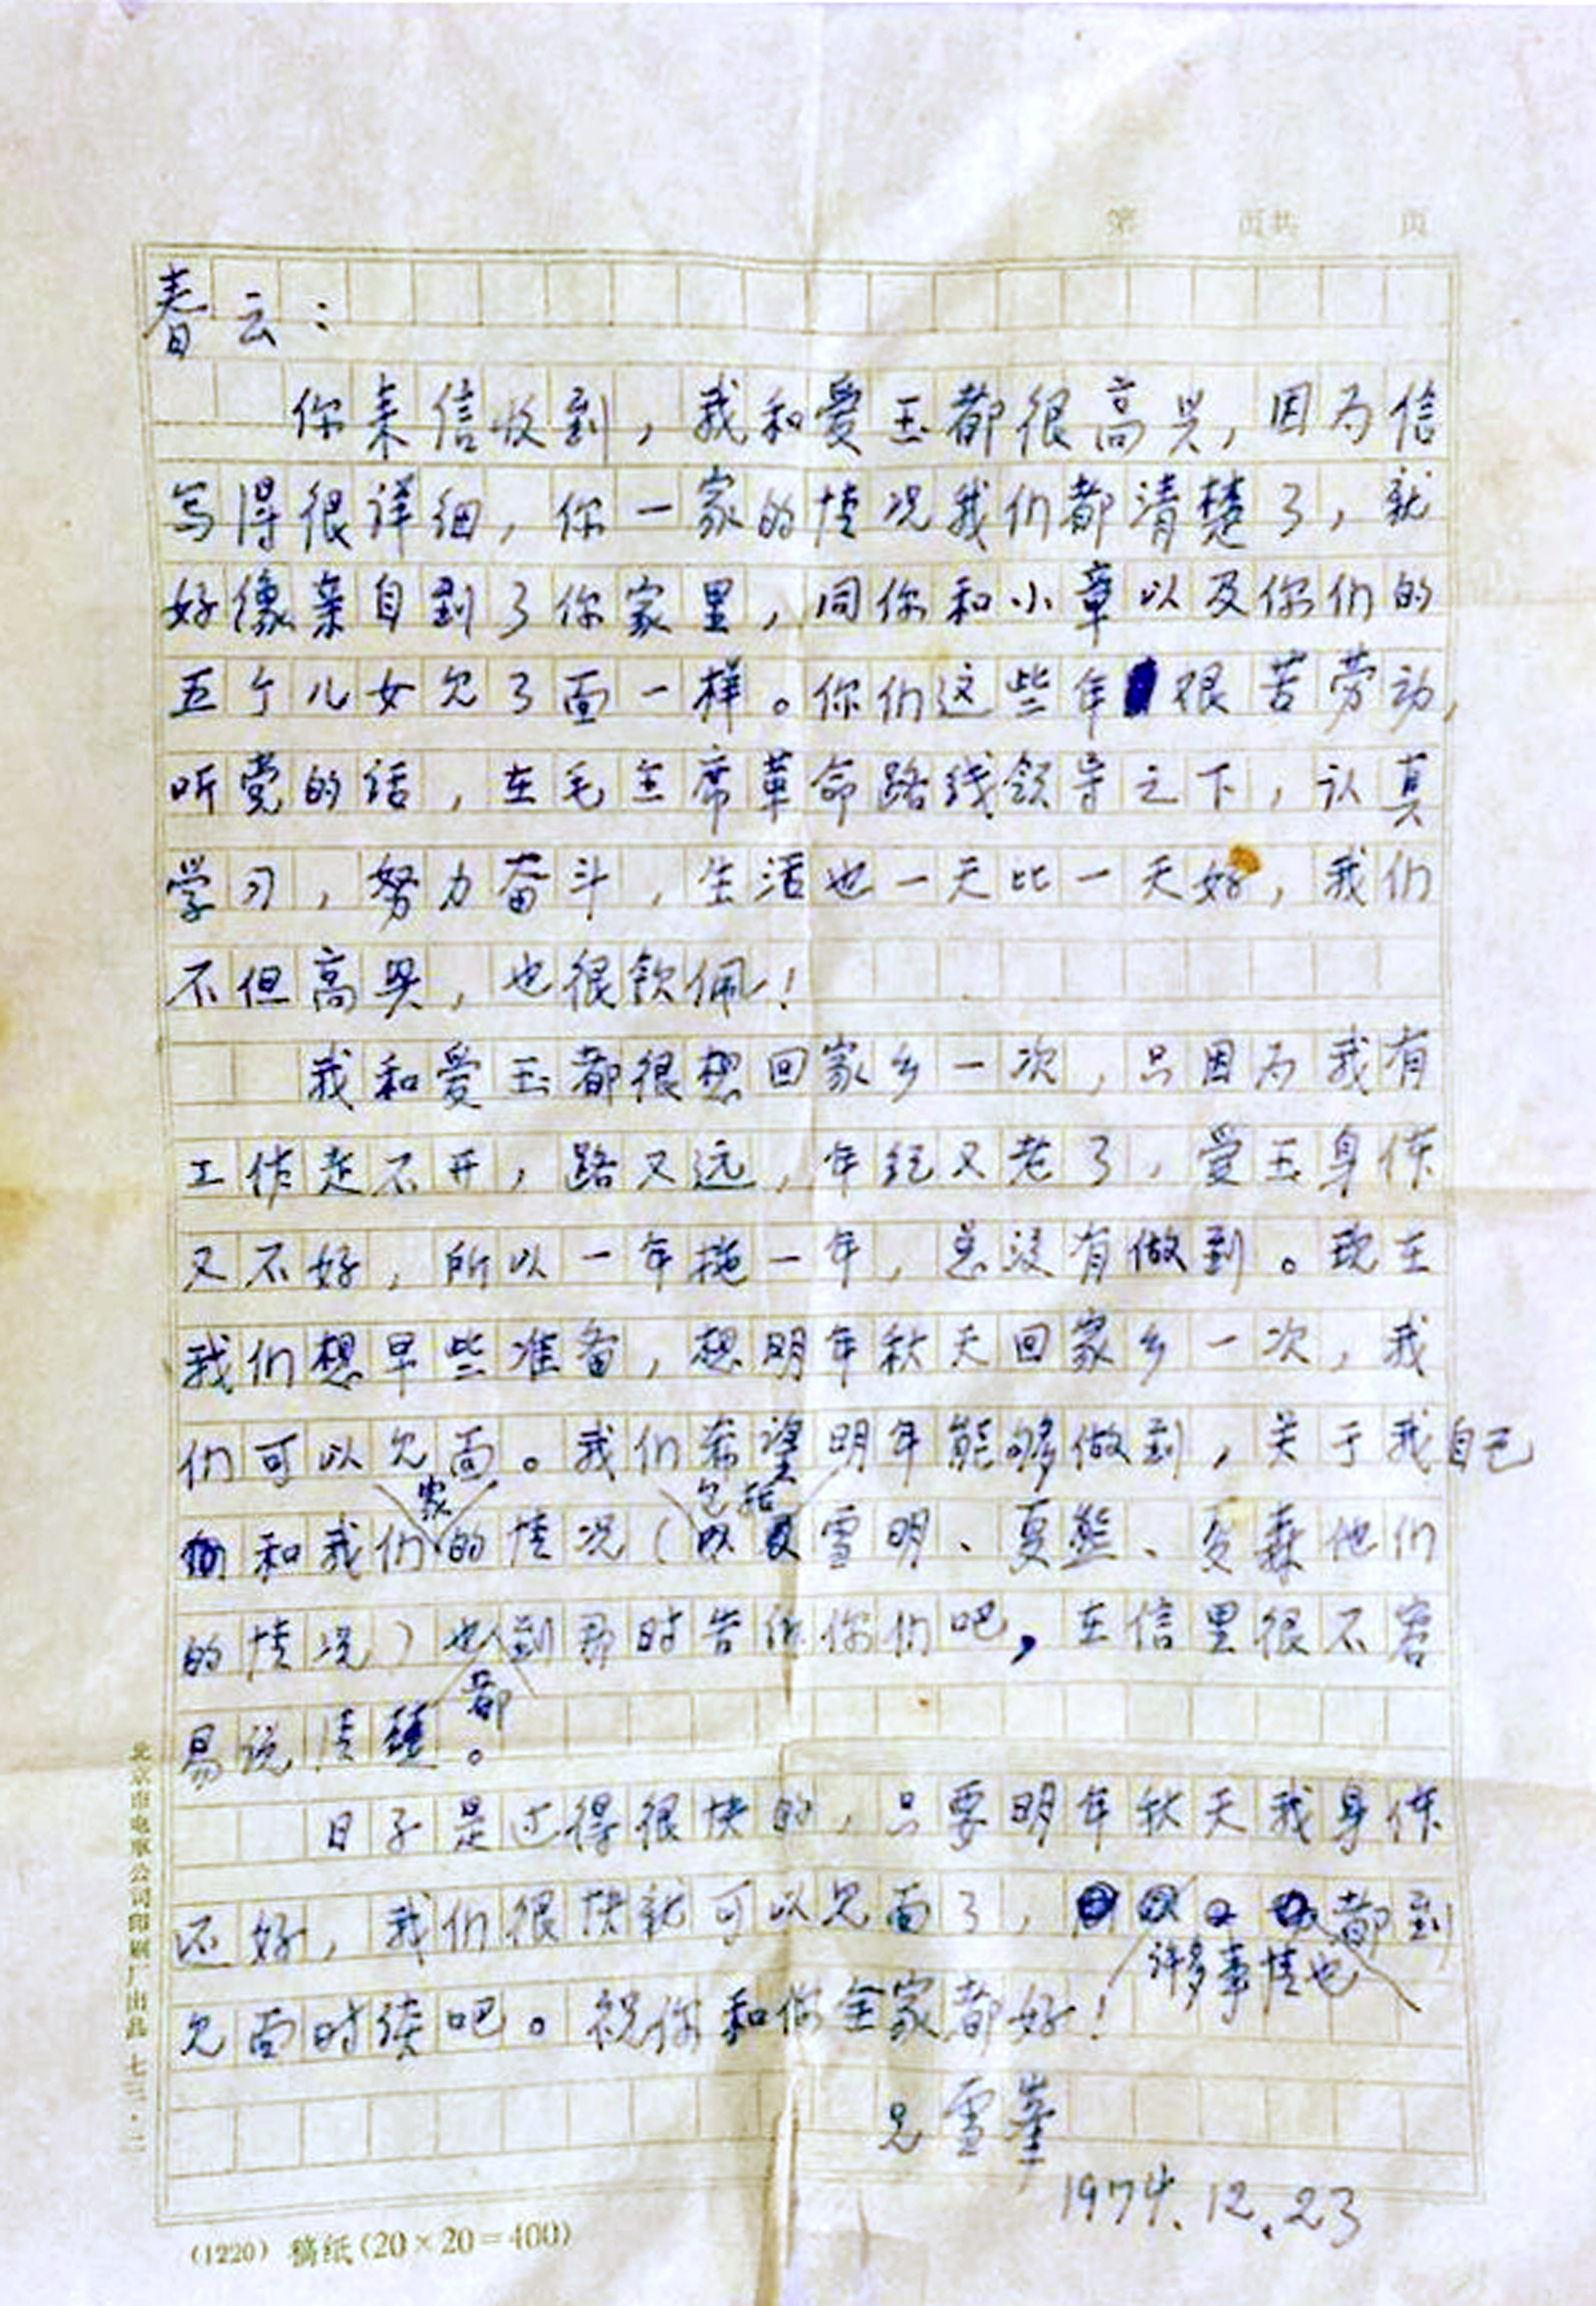 第 页共 页
春云：
你来信收到，我和爱玉都很高兴，因为信
写得很详细，你一家的情况我们都清楚了，就
好像亲自到了你家里，同你和小章以及你们的
五个儿女见了面一样。你们这些年艰苦劳动，
听党的话，在毛主席革命路线领导之下，认真
学习，努力奋斗，生活也一天比一天好，我们
不但高兴，也很钦佩！
我和爱玉都很想回家乡一次，只因为我有
工作走不开，路又远，年纪又老了，爱玉身体
又不好，所以一年拖一年，总没有做到。现在
我们想早些准备，想明年秋天回家乡一次，我
们可以见面。我们希望明年能够做到，关于我自己
和我们家的情况（包括雪明、夏熊、夏森他们
的情况）也都到那时告诉你们吧，在信里很不容
易说清楚。
日子是过得很快的，只要明年秋天我身体
还好，我们很快就可以见面了，许多事情也都到
见面时谈吧。祝你和你全家都好！
兄雪峯
1974.12.23
北京市电车公司印刷厂出品 七三·二
(1220) 稿纸(20×20=400)